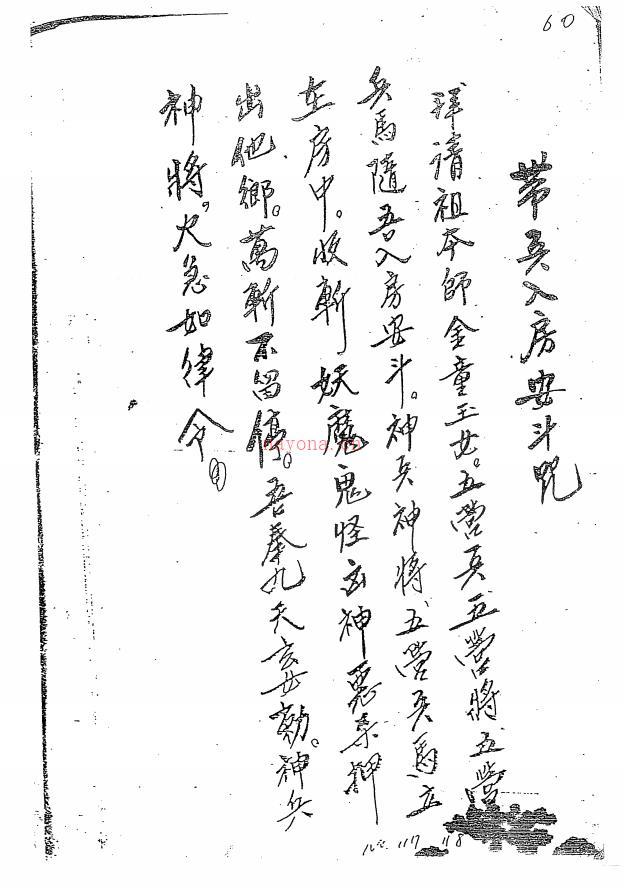 60
帶兵入房安斗咒
拜請祖本師金童玉女。五營兵五營將五營
兵馬隨吾入房安斗。神兵神將五營兵馬立
在房中。收斬妖魔鬼怪凶神惡煞押
出他鄉。萬斬不留停。吾奉九天玄女勅。神兵
神將。火急如律令
117 118